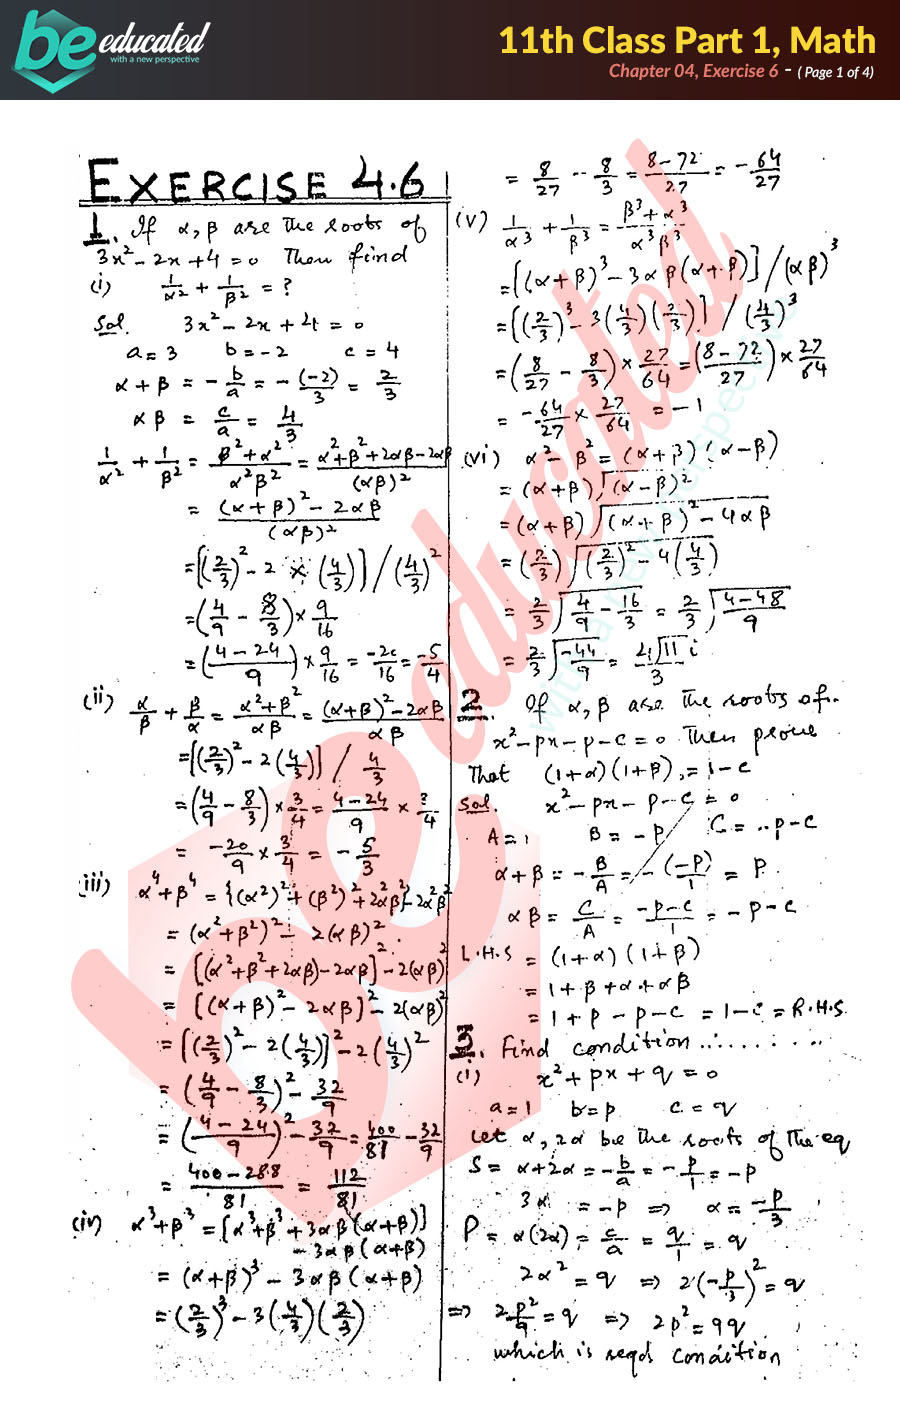 be educated
with a new perspective
11th Class Part 1, Math
Chapter 04, Exercise 6 - ( Page 1 of 4)
EXERCISE 4.6
1. If α, β are the roots of
3x² - 2x + 4 = 0 Then find
(i) 1/α² + 1/β² = ?
Sol. 3x² - 2x + 4 = 0
a = 3 b = -2 c = 4
α + β = -b/a = -(-2)/3 = 2/3
αβ = c/a = 4/3
1/α² + 1/β² = (β² + α²)/(α²β²) = (α² + β² + 2αβ - 2αβ)/(αβ)²
= ((α + β)² - 2αβ)/(αβ)²
= [(2/3)² - 2 × (4/3)] / (4/3)²
= (4/9 - 8/3) × 9/16
= ((4 - 24)/9) × 9/16 = -20/16 = -5/4
(ii) α/β + β/α = (α² + β²)/(αβ) = ((α + β)² - 2αβ)/(αβ)
= [(2/3)² - 2(4/3)] / 4/3
= (4/9 - 8/3) × 3/4 = (4 - 24)/9 × 3/4
= -20/9 × 3/4 = -5/3
(iii) α⁴ + β⁴ = {(α²)² + (β²)² + 2α²β²} - 2α²β²
= (α² + β²)² - 2(αβ)²
= [(α² + β² + 2αβ) - 2αβ]² - 2(αβ)²
= [(α + β)² - 2αβ]² - 2(αβ)²
= [(2/3)² - 2(4/3)]² - 2(4/3)²
= (4/9 - 8/3)² - 32/9
= ((4 - 24)/9)² - 32/9 = 400/81 - 32/9
= (400 - 288)/81 = 112/81
(iv) α³ + β³ = [α³ + β³ + 3αβ(α + β)]
- 3αβ(α + β)
= (α + β)³ - 3αβ(α + β)
= (2/3)³ - 3(4/3)(2/3)
= 8/27 - 8/3 = (8 - 72)/27 = -64/27
(v) 1/α³ + 1/β³ = (β³ + α³)/(α³β³)
= [(α + β)³ - 3αβ(α + β)] / (αβ)³
= [(2/3)³ - 3(4/3)(2/3)] / (4/3)³
= (8/27 - 8/3) × 27/64 = ((8 - 72)/27) × 27/64
= -64/27 × 27/64 = -1
(vi) α² - β² = (α + β)(α - β)
= (α + β)√(α - β)²
= (α + β)√((α + β)² - 4αβ)
= (2/3)√((2/3)² - 4(4/3))
= 2/3 √(4/9 - 16/3) = 2/3 √((4 - 48)/9)
= 2/3 √(-44/9) = 4√11 i/3
2. If α, β are the roots of
x² - px - p - c = 0 Then prove
That (1 + α)(1 + β) = 1 - c
Sol. x² - px - p - c = 0
A = 1 B = -p C = -p - c
α + β = -B/A = -(-p)/1 = p
αβ = C/A = (-p - c)/1 = -p - c
L.H.S = (1 + α)(1 + β)
= 1 + β + α + αβ
= 1 + p - p - c = 1 - c = R.H.S.
3. Find condition .........
(i) x² + px + q = 0
a = 1 b = p c = q
Let α, 2α be the roots of the eq
S = α + 2α = -b/a = -p/1 = -p
3α = -p ⇒ α = -p/3
P = α(2α) = c/a = q/1 = q
2α² = q ⇒ 2(-p/3)² = q
⇒ 2p²/9 = q ⇒ 2p² = 9q
which is reqd condition